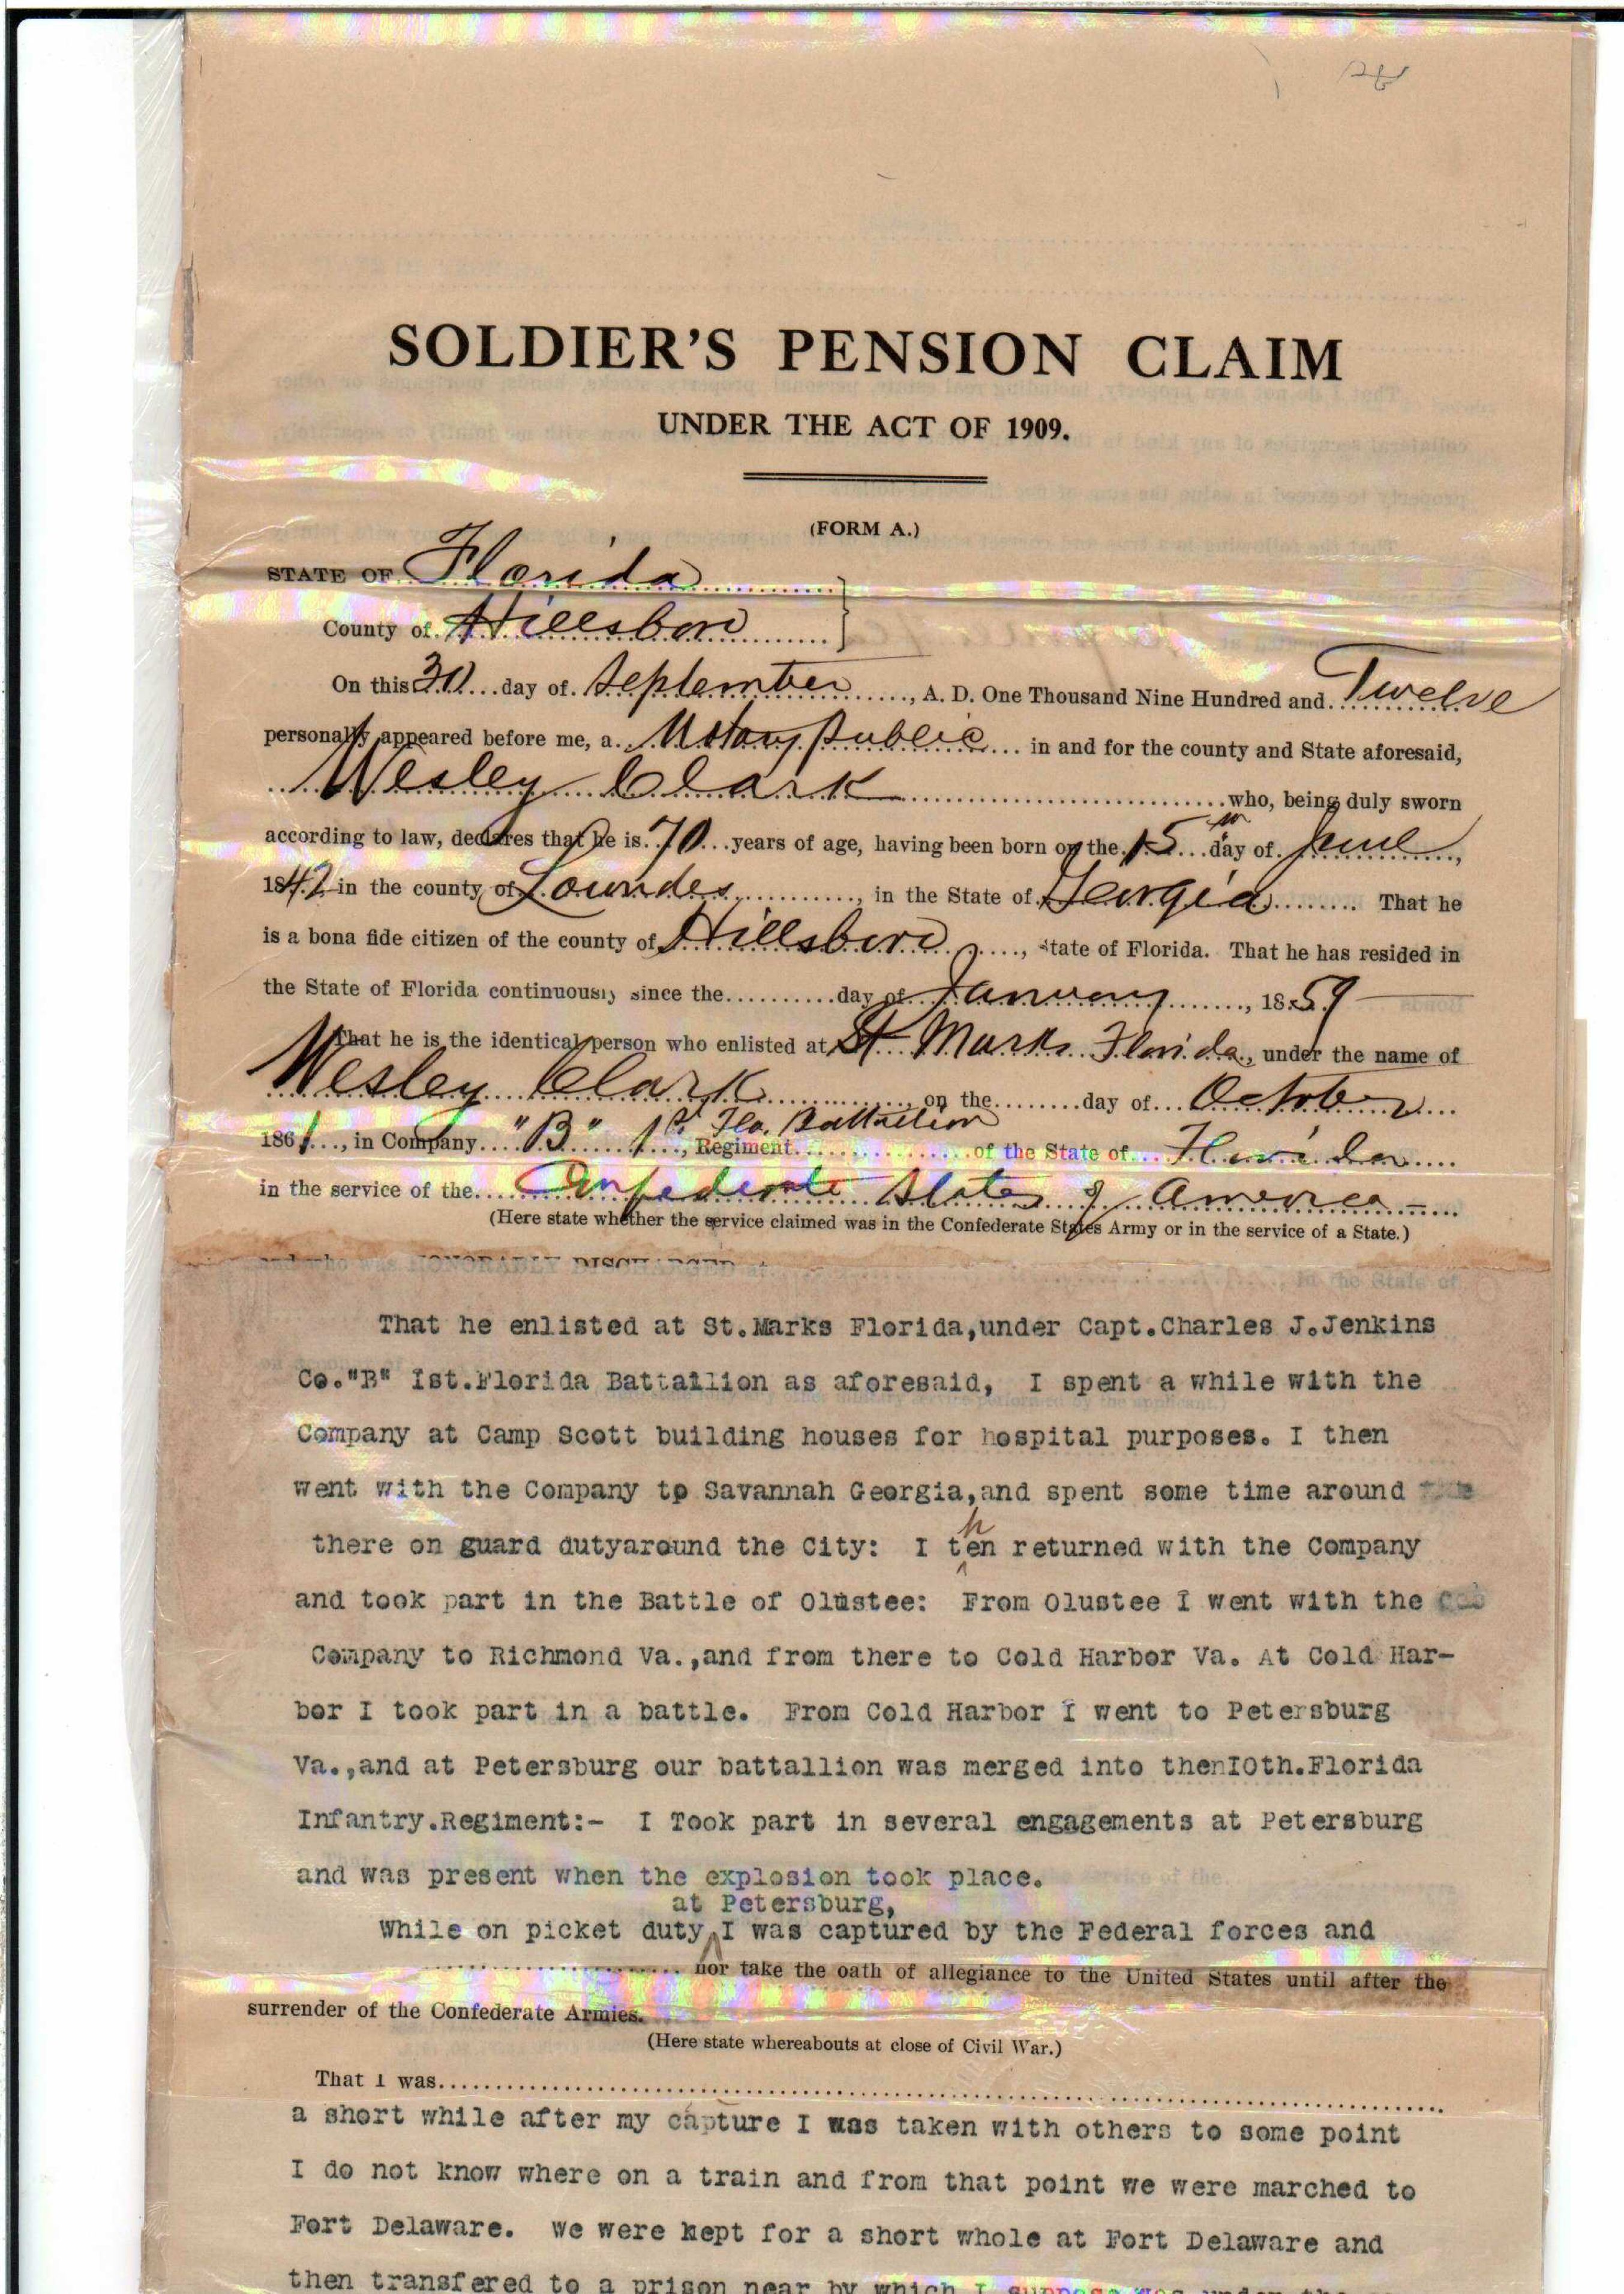 SOLDIER'S PENSION CLAIM
UNDER THE ACT OF 1909.
(FORM A.)
STATE OF Florida
County of Hillsboro
On this 30 day of September, A. D. One Thousand Nine Hundred and Twelve
personally appeared before me, a Notary Public in and for the county and State aforesaid,
Wesley Clark who, being duly sworn
according to law, declares that he is 70 years of age, having been born on the 15th day of June,
1842 in the county of Lowndes, in the State of Georgia That he
is a bona fide citizen of the county of Hillsboro, State of Florida. That he has resided in
the State of Florida continuously since the..........day of January, 1859
That he is the identical person who enlisted at St Marks Florida, under the name of
Wesley Clark on the........day of October
1861, in Company "B" 1st Fla. Battallion, Regiment of the State of Florida
in the service of the Confederate States of America
(Here state whether the service claimed was in the Confederate States Army or in the service of a State.)
and who was HONORABLY DISCHARGED at in the State of
That he enlisted at St.Marks Florida,under Capt.Charles J.Jenkins
Co."B" Ist.Florida Battallion as aforesaid, I spent a while with the
Company at Camp Scott building houses for hospital purposes. I then
went with the Company to Savannah Georgia,and spent some time around
there on guard dutyaround the City: I then returned with the Company
and took part in the Battle of Olustee: From Olustee I went with the
Company to Richmond Va.,and from there to Cold Harbor Va. At Cold Har-
bor I took part in a battle. From Cold Harbor I went to Petersburg
Va.,and at Petersburg our battallion was merged into thenI0th.Florida
Infantry.Regiment:- I Took part in several engagements at Petersburg
and was present when the explosion took place.
at Petersburg,
While on picket duty I was captured by the Federal forces and
nor take the oath of allegiance to the United States until after the
surrender of the Confederate Armies.
(Here state whereabouts at close of Civil War.)
That I was
a short while after my capture I was taken with others to some point
I do not know where on a train and from that point we were marched to
Fort Delaware. We were kept for a short whole at Fort Delaware and
then transfered to a prison near by which I suppose was under the